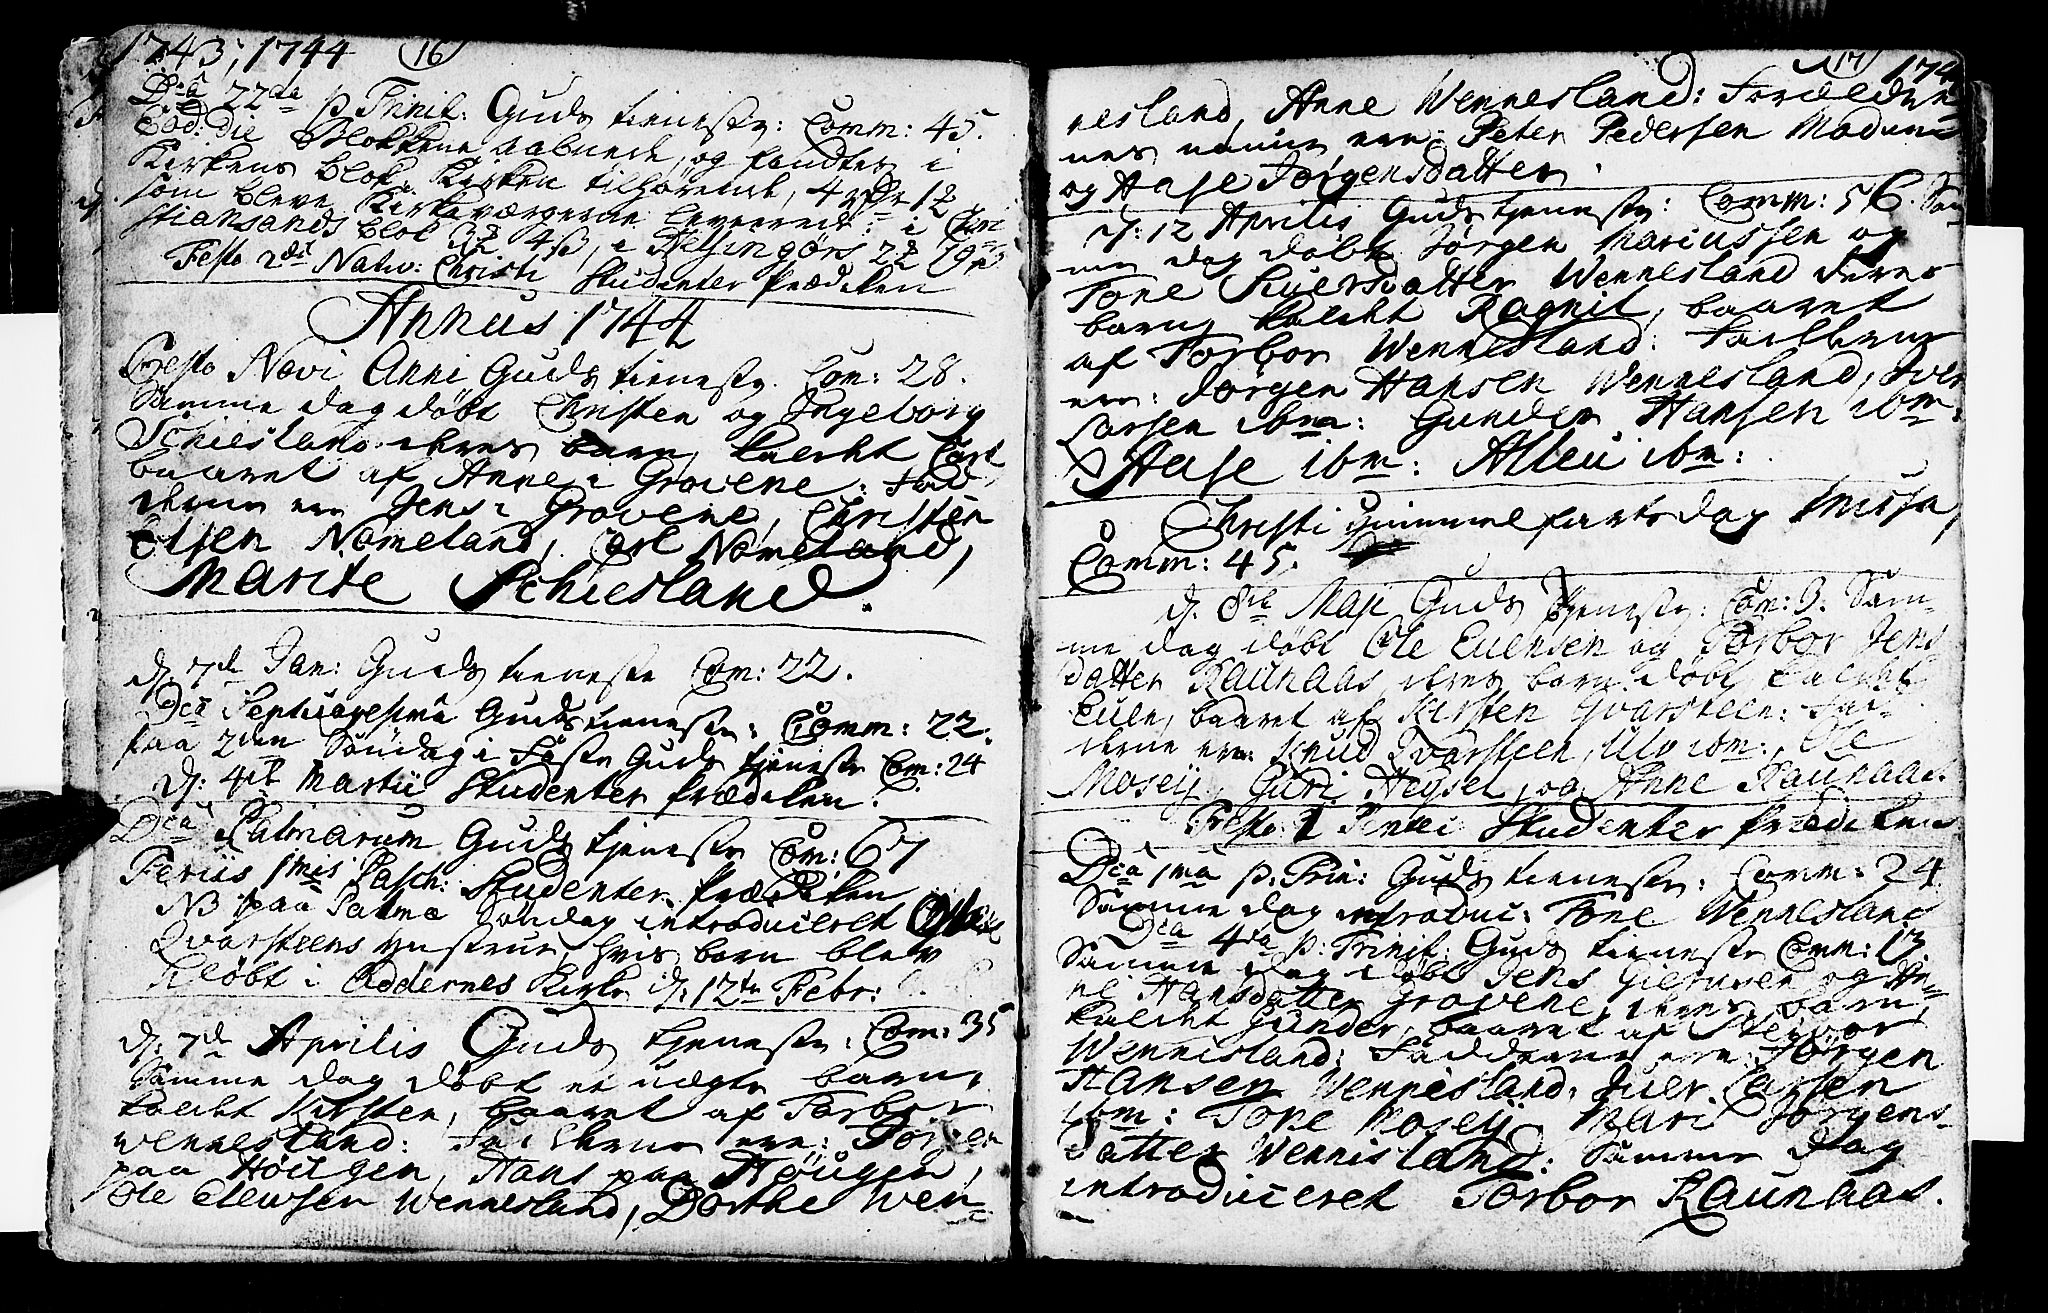 1743, 1744 16
Dca 22da p Trinit: Guds tieneste: Comm: 45.
Eod: die Blokkene aabnede, og fandtes i
Kirkens blok, Kirken tilhørende, 4
som bleve Kirkeværgerne leverede: i Chri-
stiansands blok 4ß, i Helsingørs
Festo 2di Nativ: Christi Studenter prædiken
Annus 1744
Festo Novi Anni Guds tieneste. Com: 28.
Samme dag døbt Christen og Ingeborg
Schiesland deres barn, kaldet
baaret af Anne i Grovene: Fad-
derne ere Jens i Grovene, Christen
Olsen Nomeland, Nomeland,
Marite Schiesland.
d: 7de Jan: Guds tieneste Com: 22.
Dca Septuagesima Guds tieneste: Comm: 22.
paa 2den Søndag i Faste Guds tjeneste Com: 24
d: 4de Martii Studenter prædiken.
Dca Palmarum Guds tjeneste Com: 67
Feriis 1mis Pasch: Studenter prædiken
NB paa Palme Søndag introduceret
Qvarsteens hustrue, hvis barn blev
døbt i Oddernes Kirke d: 12te Febr:
d: 7de Aprilis Guds tjeneste: Com: 35
Samme dag døbt et uægte barn,
kaldet Kirsten, baaret af Torbor
Wennesland: Fadderne ere:
paa Höugen, Hans paa Höugen,
Ole Wennesland, Dorthe Wen-
17 174
nesland, Anne Wennesland: Forælder-
nes navne ere: Peter Pedersen
og Aase Jørgensdatter.
d: 12 Aprilis Guds tjeneste: Comm: 56. Sam-
me dag døbt Jørgen Mariussen og
Tone Siversdatter Wennesland deres
barn, kaldet Ragnil, baaret
af Torbor Wennesland: Fadderne
ere: Jørgen Hansen Wennesland, Iver
Larsen ibm: Gunder Hansen ibm:
Aase ibm: ibm:
Christi Himmelfarts dag Missa,
Comm: 45.
d: 8de Maji Guds tjeneste: Com: 9. Sam-
me dag døbt Ole Evensen og Torbor Jens
datter Raunaas, deres barn døbt, kaldet
Even, baaret af Kirsten Qvarsteen: Fad-
derne ere Knud Qvarsteen, ibm:, Ole
Moseij, Guri Heysel, og Anne Raunaas.
Festo Pentec: Studenter prædiken
Dca 1ma p. Trin: Guds tieneste: Comm: 24
Samme dag introduc: Tone Wennesland
Dca 4ta p: Trinit: Guds tieneste Comm: 13
Samme dag døbt Jens og An-
ne Hansdatter Grovene, deres barn,
kaldet Gunder, baaret af
Wennisland: Fadderne ere: Jørgen
Hansen Wennisland, Iver Larsen
ibm: Tone Moseij, Mari Jørgens-
datter Wennisland: Samme dag
introduceret Torbor Raunaas.